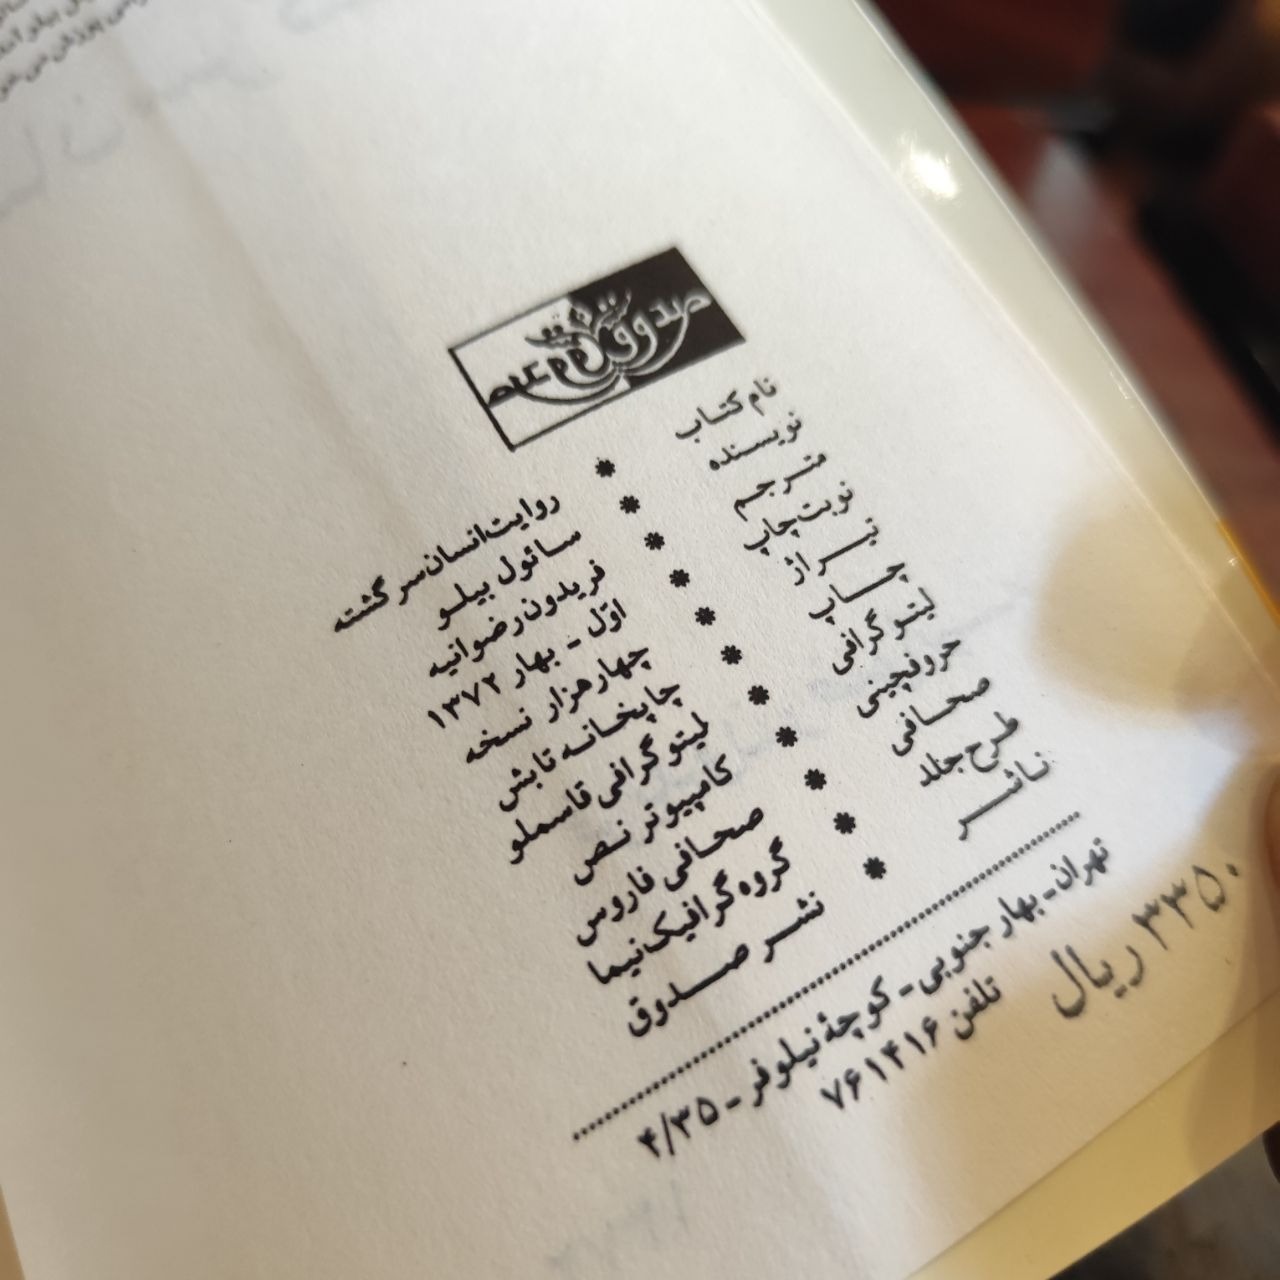 صدوق
نام کتاب * روایت انسان سرگشته
نویسنده * سائول بیلو
مترجم * فریدون رضوانیه
نوبت چاپ * اوّل - بهار ۱۳۷۲
تیراژ * چهار هزار نسخه
چاپ * چاپخانه تابش
لیتوگرافی * لیتوگرافی قاسملو
حروفچینی * کامپیوتر نص
صحافی * صحافی فاروس
طرح جلد * گروه گرافیک نیما
ناشر * نشر صدوق
تهران - بهار جنوبی - کوچهٔ نیلوفر - ۴/۳۵
تلفن ۷۶۱۴۱۶
۳۳۵۰ ریال